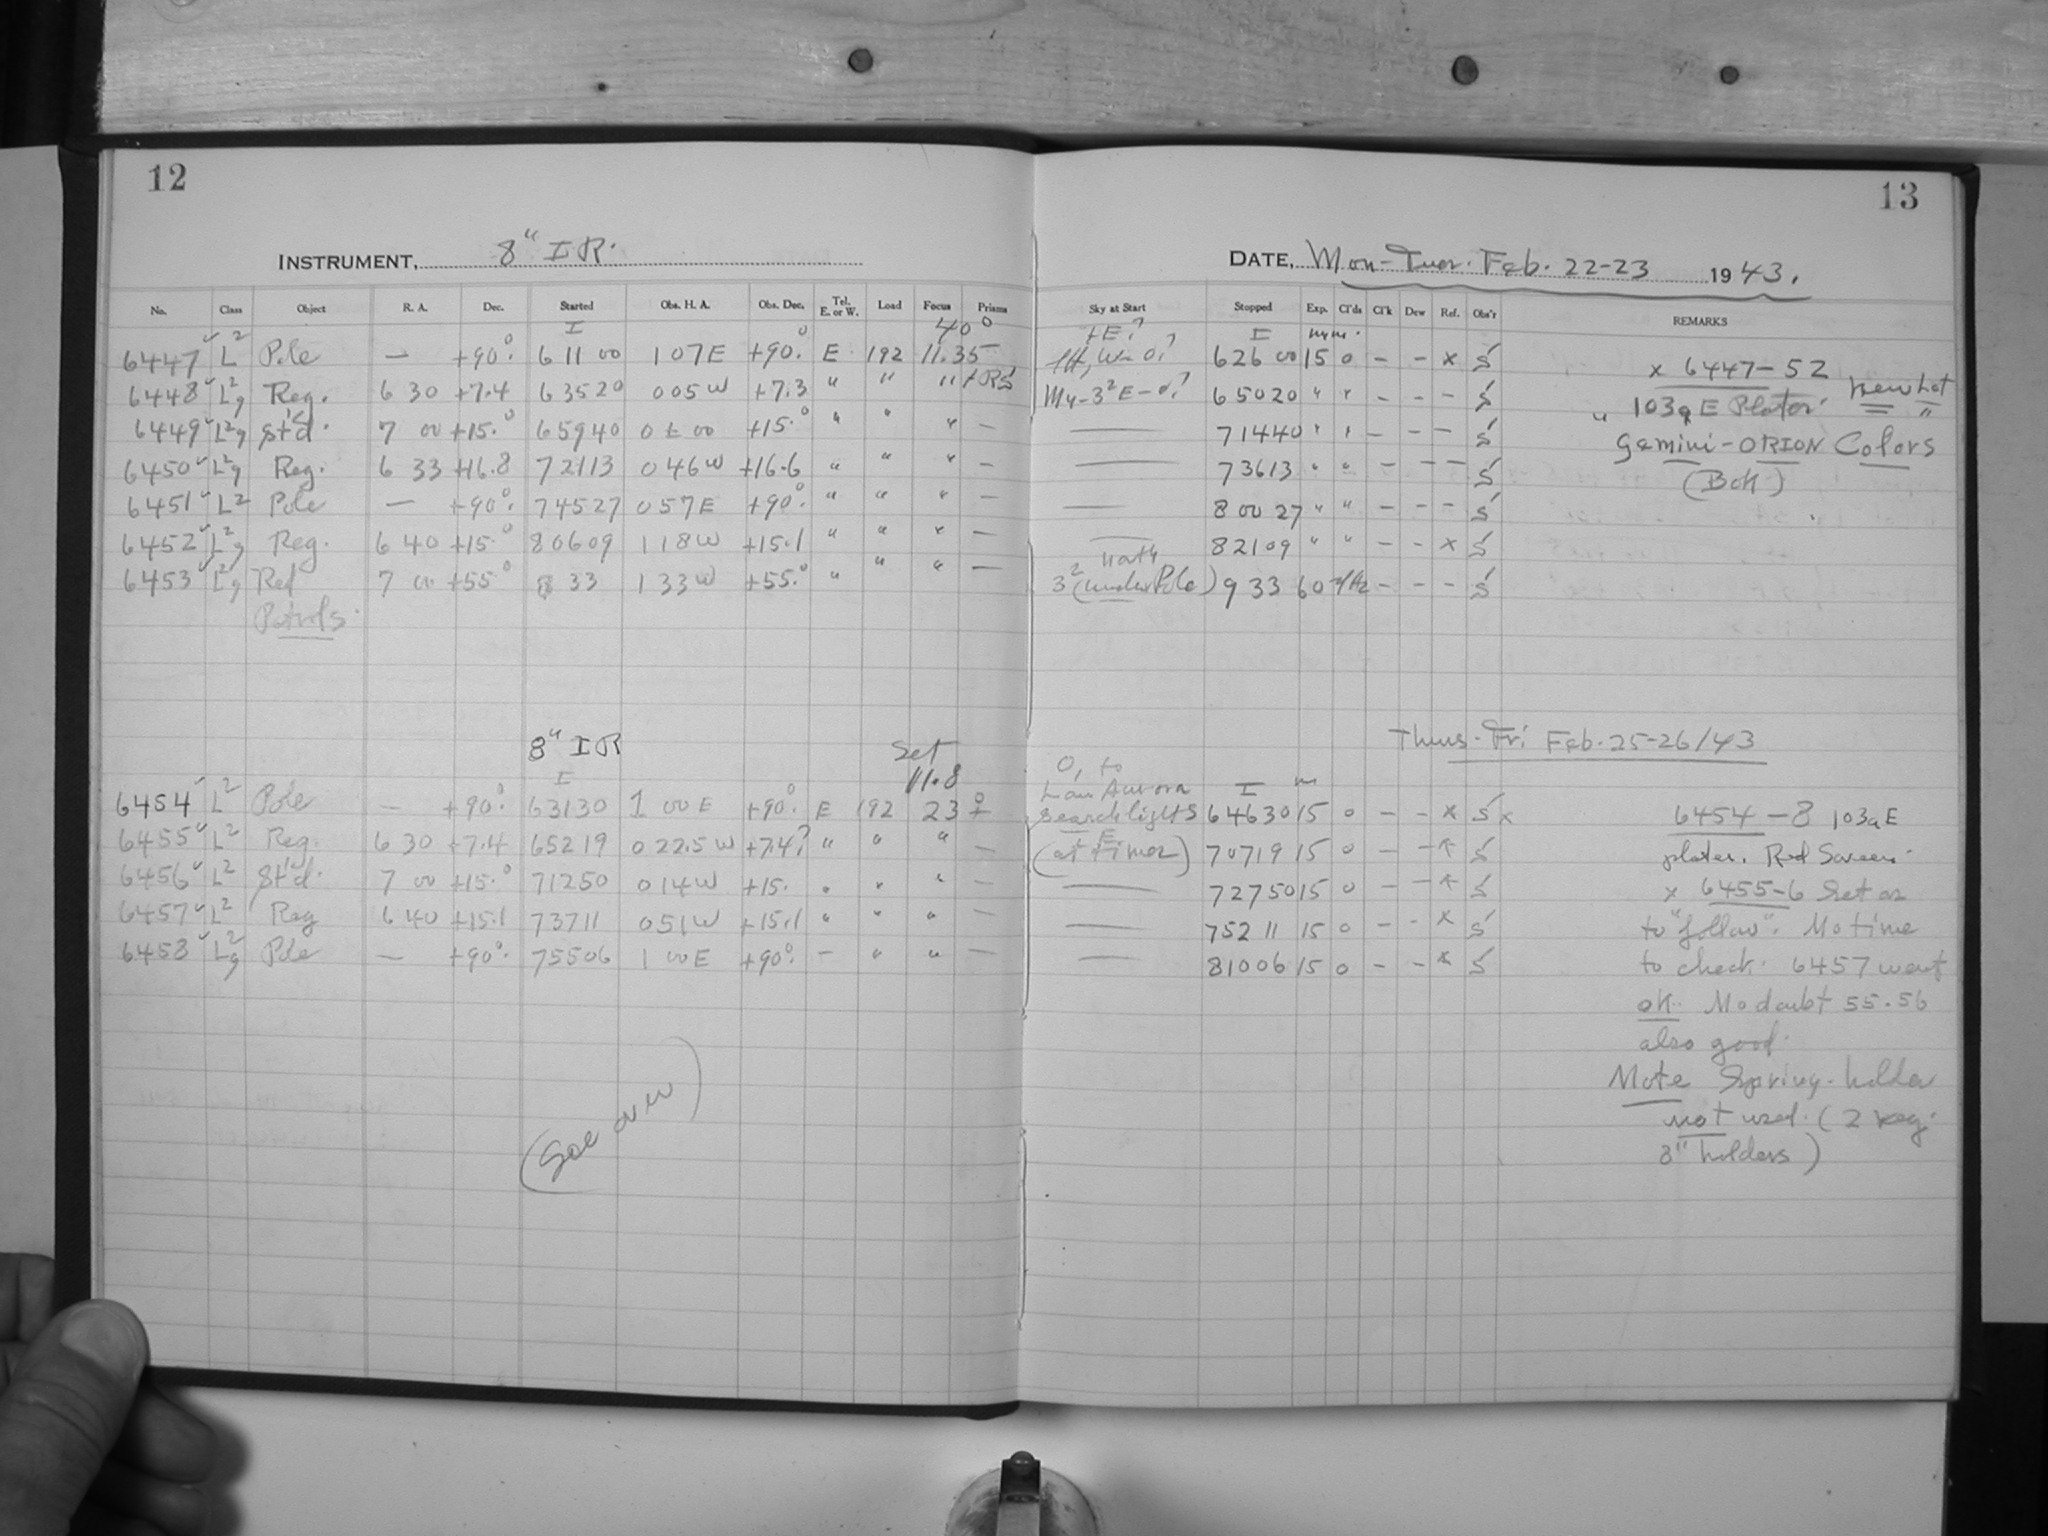 12
13
INSTRUMENT, 8" I R.
DATE, Mon-Tues. Feb. 22-23 1943.
No. Class Object R. A. Dec. Started Obs. H. A. Obs. Dec. Tel. E. or W. Load Focus Prisms Sky at Start Stopped Exp. Cl'ds Cl'k Dew Ref. Obs'r REMARKS
I 40° +E? I m
6447 L² Pole — +90° 6 11 00 1 07 E +90° E 192 11.35 6 26 00 15 0 – – x S x 6447–52
6448 L²g Reg. 6 30 +7.4 6 35 20 0 05 W +7.3 " " " 6 50 20 " " – – – S " 103a E Plates. New Lot
6449 L²g St'd. 7 00 +15.° 6 59 40 0 ± 00 +15.° " " " — — 7 14 40 " " – – – S Gemini-ORION Colors
6450 L²g Reg. 6 33 +16.8 7 21 13 0 46 W +16.6 " " " — — 7 36 13 " " – – – S (Bok)
6451 L² Pole — +90° 7 45 27 0 57 E +90° " " " — — 8 00 27 " " – – – S
6452 L²g Reg. 6 40 +15.° 8 06 09 1 18 W +15.1 " " " — — 8 21 09 " " – – x S
north
6453 L²g Red 7 00 +55° 8 33 1 33 W +55.° " " " — 3² (under Pole) 9 33 60 – – – S
Patrols.
8" I R
Thurs-Fri Feb. 25-26/43
I Set 11.8 0, to Low Aurora I m
6454 L² Pole — +90° 6 31 30 1 00 E +90° E 192 23° searchlights 6 46 30 15 0 – – x S x 6454–8 103a E
6455 L² Reg. 6 30 +7.4 6 52 19 0 22.5 W +7.4? " " " — (at times) E 7 07 19 15 0 – – x S plates. Red Screen.
6456 L² St'd. 7 00 +15.° 7 12 50 0 14 W +15. " " " — — 7 27 50 15 0 – – x S x 6455–6 Set on
6457 L² Reg 6 40 +15.1 7 37 11 0 51 W +15.1 " " " — — 7 52 11 15 0 – – x S to "follow". No time
6458 L²g Pole — +90° 7 55 06 1 00 E +90° – " " — — 8 10 06 15 0 – – x S to check. 6457 went
OK. No doubt 55.56
also good.
Note Spring-holder
not used. (2 reg.
8" holders)
(See over)